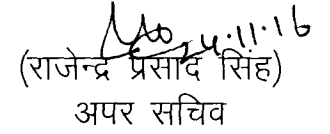 24.11.16
(राजेन्द्र प्रसाद सिंह)
अपर सचिव